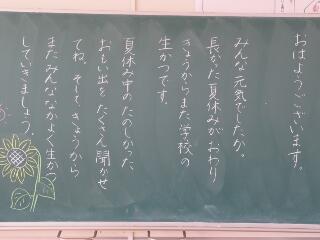 おはようございます。
みんな元気でしたか。
長かった夏休みがおわり、
きょうからまた学校の
生かつです。
夏休み中のたのしかった
おもい出をたくさん聞かせ
てね。そして、きょうから
またみんななかよく生かつ
していきましょう。